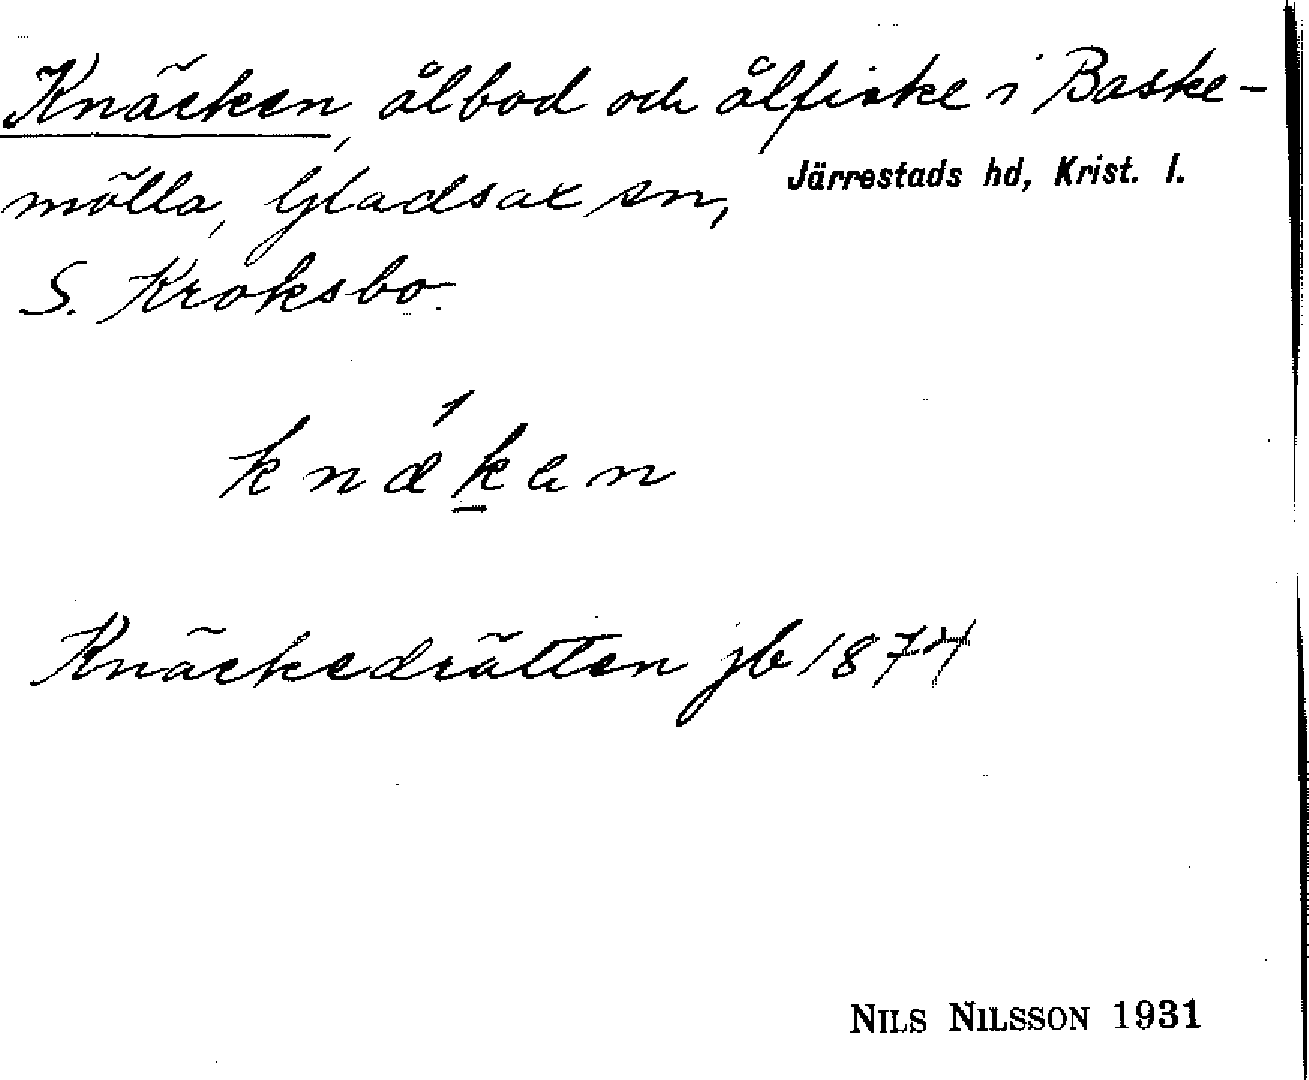 Knäcken, ålbod och ålfiske i Baske-
mölla, Gladsax sn, Järrestads hd, Krist. l.
S. Kroksbo.
knǽk̲en
Knäckedrätten jb 1874
NILS NILSSON 1931